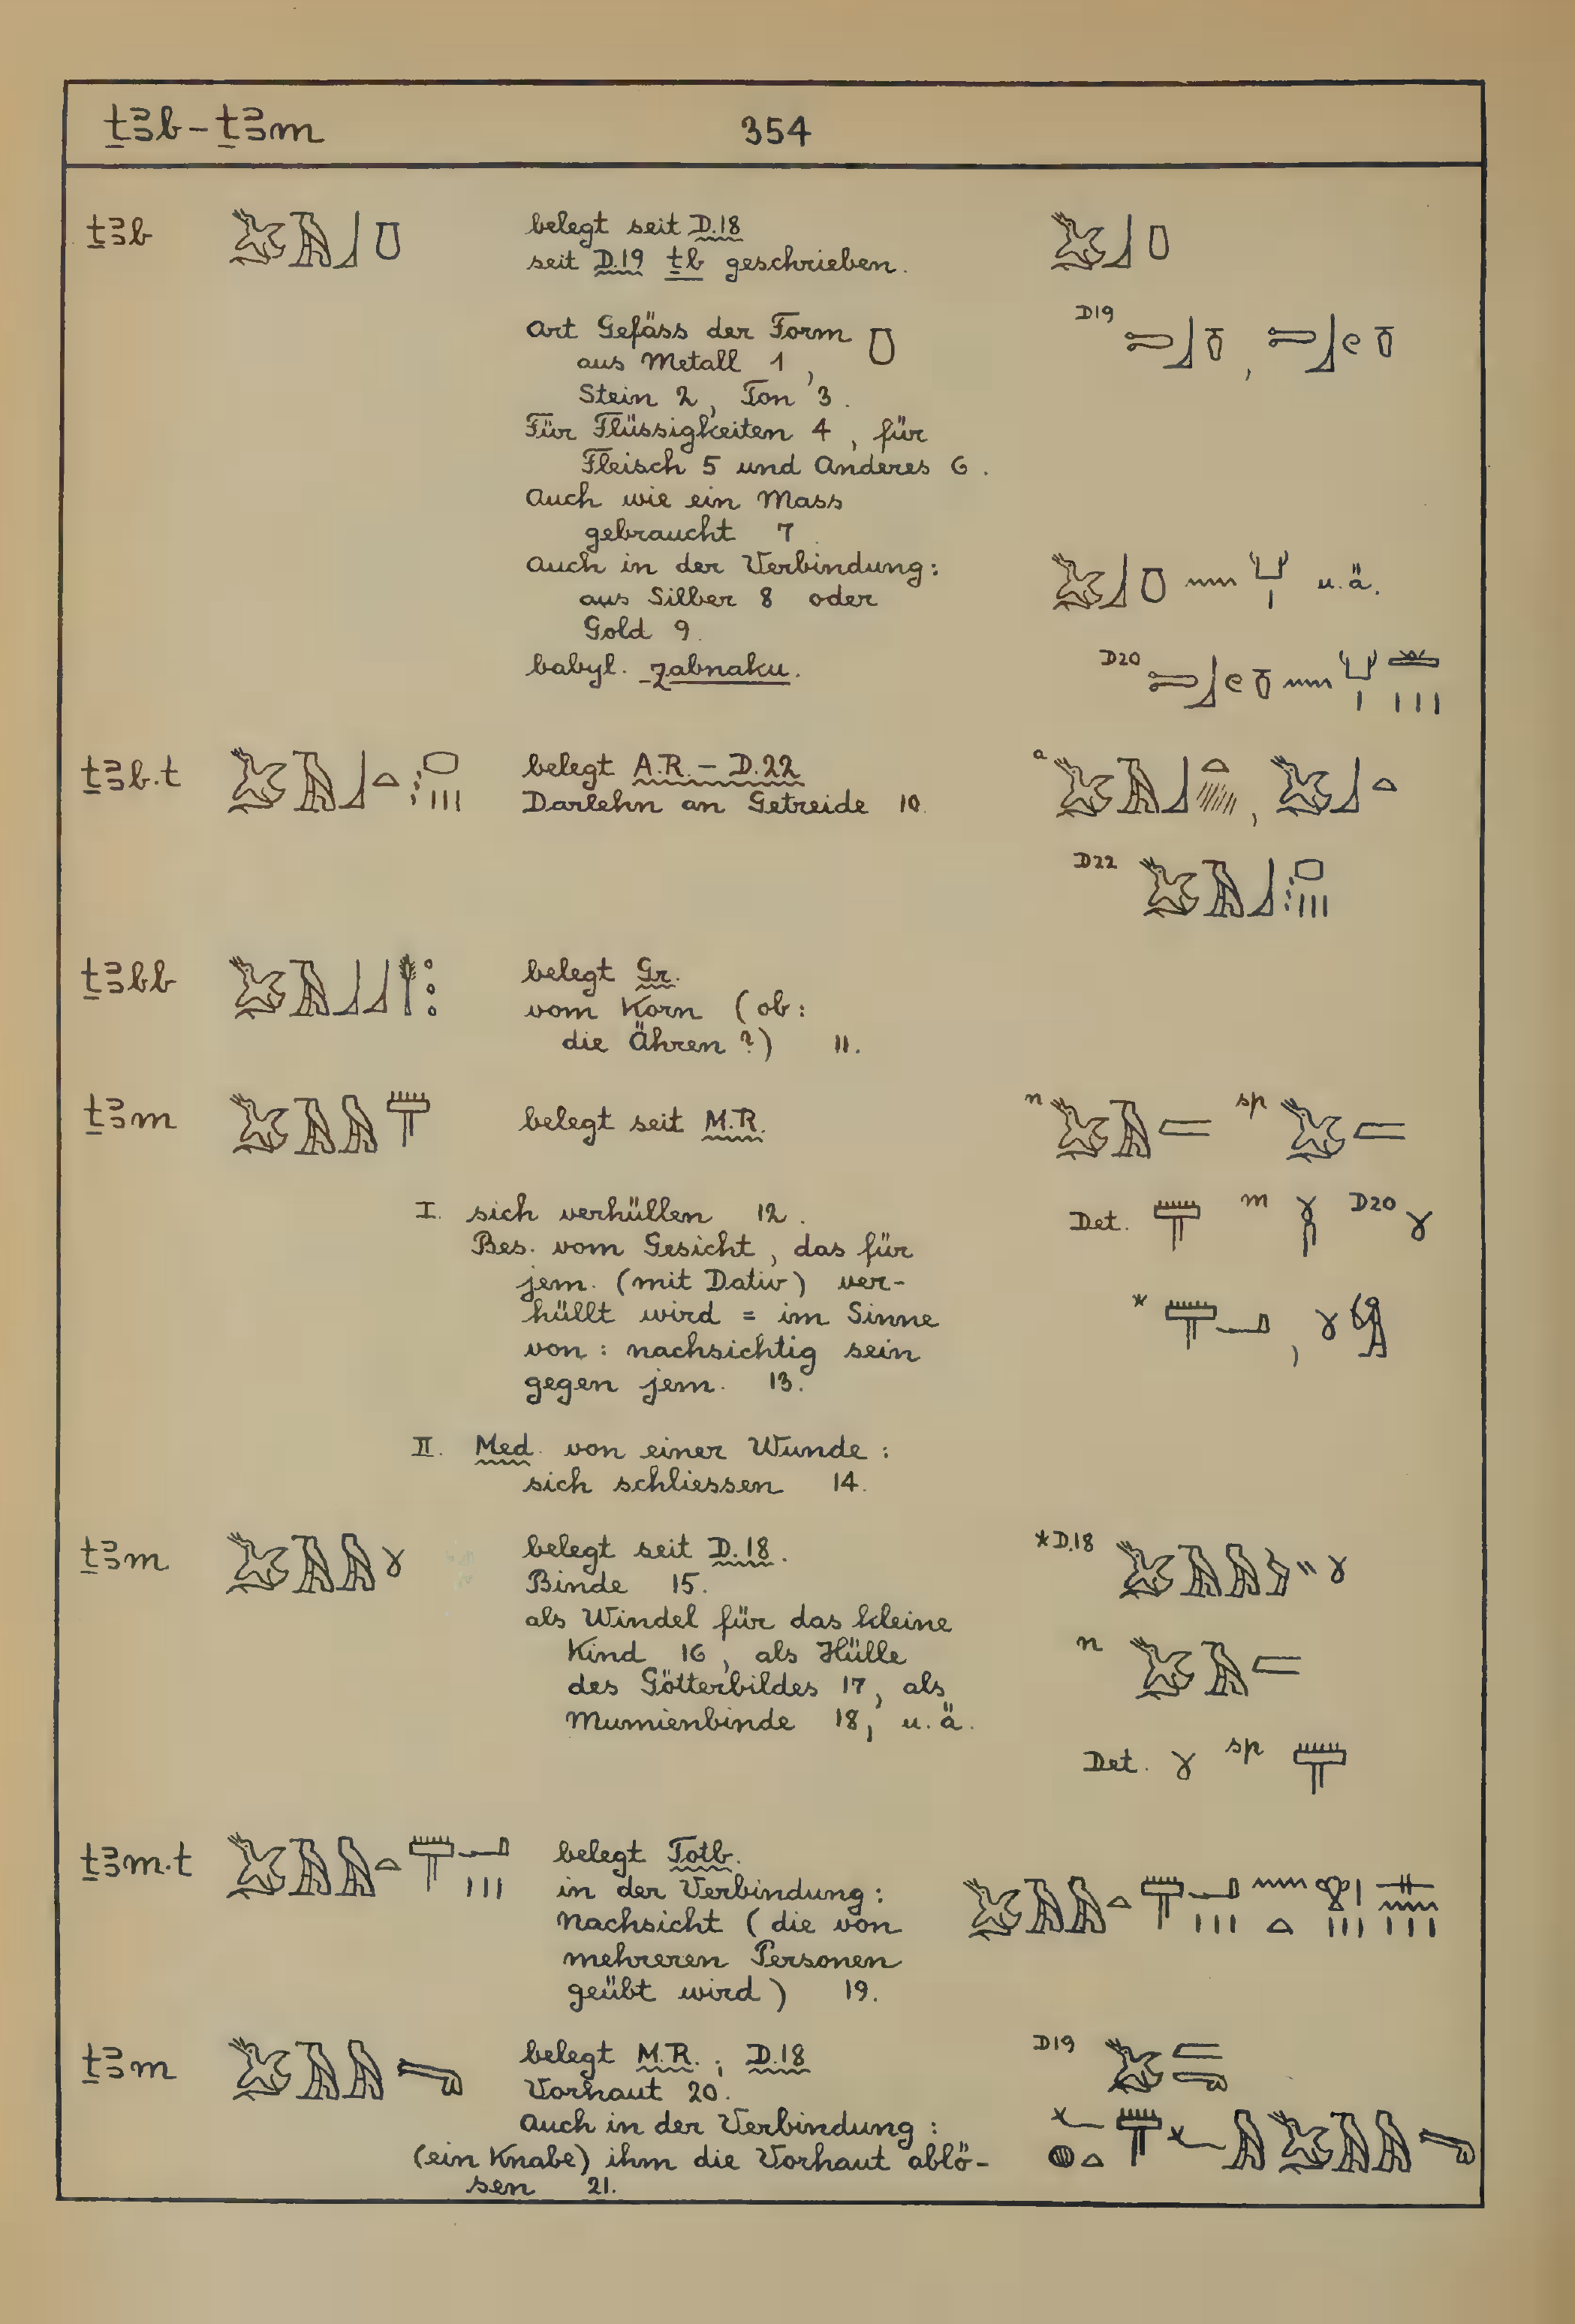 ṯꜣb – ṯꜣm 354
ṯꜣb belegt seit D.18
seit D.19 ṯb geschrieben.
Art Gefäss der Form
D19
aus Metall 1,
Stein 2, Ton 3.
Für Flüssigkeiten 4, für
Fleisch 5 und Anderes 6.
Auch wie ein Mass
gebraucht 7
Auch in der Verbindung: u.ä.
aus Silber 8 oder
Gold 9.
babyl. zabnaku. D20
ṯꜣb.t belegt A.R. – D.22 a
Darlehn an Getreide 10.
D22
ṯꜣbb belegt Gr.
vom Korn (ob:
die Ähren?) 11.
ṯꜣm belegt seit M.R. n sp
I. sich verhüllen 12. Det. m D20
Bes. vom Gesicht, das für
jem. (mit Dativ) ver-
hüllt wird = im Sinne *
von: nachsichtig sein
gegen jem. 13.
II. Med. von einer Wunde:
sich schliessen 14.
ṯꜣm belegt seit D.18. *D.18
Binde 15.
als Windel für das kleine
Kind 16, als Hülle n
des Götterbildes 17, als
Mumienbinde 18, u.ä.
Det. sp
ṯꜣm.t belegt Totb.
in der Verbindung:
Nachsicht (die von
mehreren Personen
geübt wird) 19.
ṯꜣm belegt M.R.; D.18 D19
Vorhaut 20.
Auch in der Verbindung:
(ein Knabe) ihm die Vorhaut ablö-
sen 21.